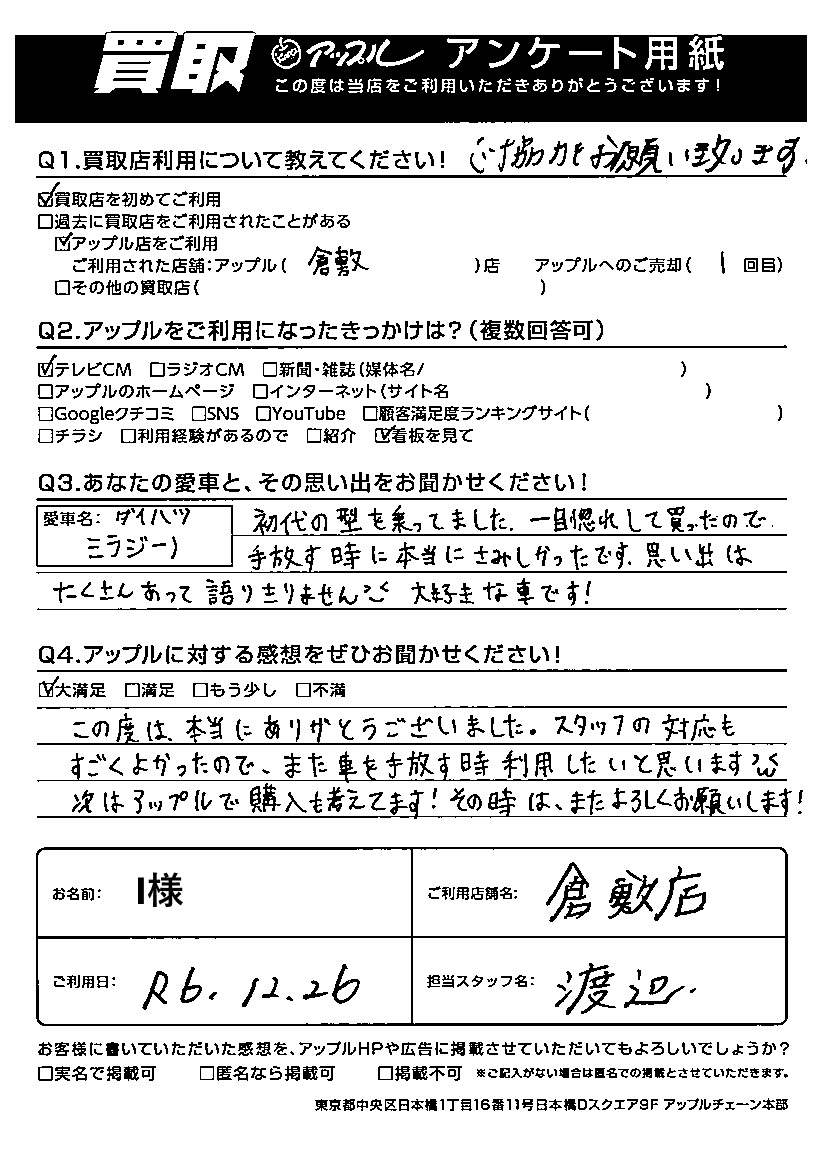 買取 アップル アンケート用紙
この度は当店をご利用いただきありがとうございます!
Q1.買取店利用について教えてください! ご協力をお願い致します。
☑買取店を初めてご利用
□過去に買取店をご利用されたことがある
☑アップル店をご利用
ご利用された店舗:アップル( 倉敷 )店 アップルへのご売却( 1 回目)
□その他の買取店( )
Q2.アップルをご利用になったきっかけは?(複数回答可)
☑テレビCM □ラジオCM □新聞・雑誌(媒体名/ )
□アップルのホームページ □インターネット(サイト名 )
□Googleクチコミ □SNS □YouTube □顧客満足度ランキングサイト( )
□チラシ □利用経験があるので □紹介 ☑看板を見て
Q3.あなたの愛車と、その思い出をお聞かせください!
愛車名: ダイハツ 初代の型を乗ってました。一目惚れして買ったので
ミラジーノ 手放す時に本当にさみしかったです。思い出は
たくさんあって語りきりません 大好きな車です!
Q4.アップルに対する感想をぜひお聞かせください!
☑大満足 □満足 □もう少し □不満
この度は、本当にありがとうございました。スタッフの対応も
すごくよかったので、また車を手放す時利用したいと思います
次はアップルで購入も考えてます!その時は、またよろしくお願いします!
お名前: I様 ご利用店舗名: 倉敷店
ご利用日: R6.12.26 担当スタッフ名: 渡辺
お客様に書いていただいた感想を、アップルHPや広告に掲載させていただいてもよろしいでしょうか?
□実名で掲載可 □匿名なら掲載可 □掲載不可 ※ご記入がない場合は匿名での掲載とさせていただきます。
東京都中央区日本橋1丁目16番11号日本橋Dスクエア9F アップルチェーン本部